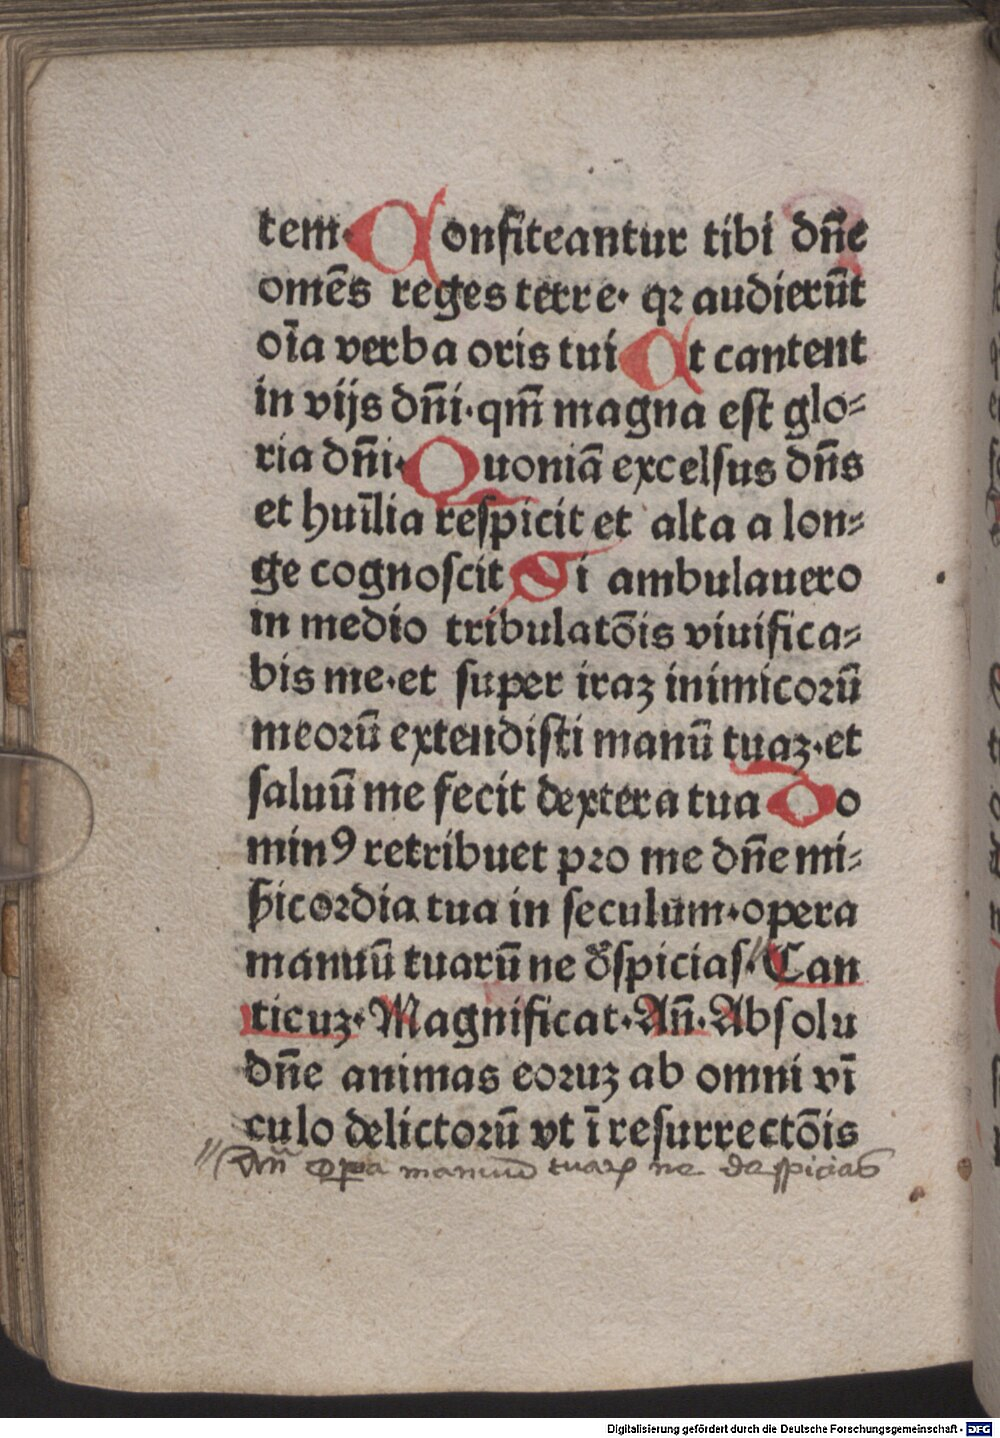 tem· Confiteantur tibi dn̄e
omēs reges terre· qꝛ audierūt
oīa verba oris tui Et cantent
in vijs dn̄i·qm̄ magna eſt glo⸗
ria dn̄i· Quoniā excelſus dn̄s
et huīlia reſpicit et alta a lon⸗
ge cognoſcit Si ambulauero
in medio tribulatōis viuifica⸗
bis me·et ſuper iraꝫ inimicoꝛū
meoꝛū extendiſti manū tuaꝫ·et
ſaluū me fecit dextera tua Do
minꝰ retribuet pꝛo me dn̄e mi⸗
ẜicoꝛdia tua in ſeculum·opera
manuū tuarū ne d̾ſpicias·" Can
ticuꝫ· Magnificat· An̄· Abſolu
dn̄e animas eoꝛuꝫ ab omni vī
culo delictoꝛū vt ī reſurrectōis
" An̄ Opera manuū tuaꝝ ne deſpicias
Digitalisierung gefördert durch die Deutsche Forschungsgemeinschaft - DFG